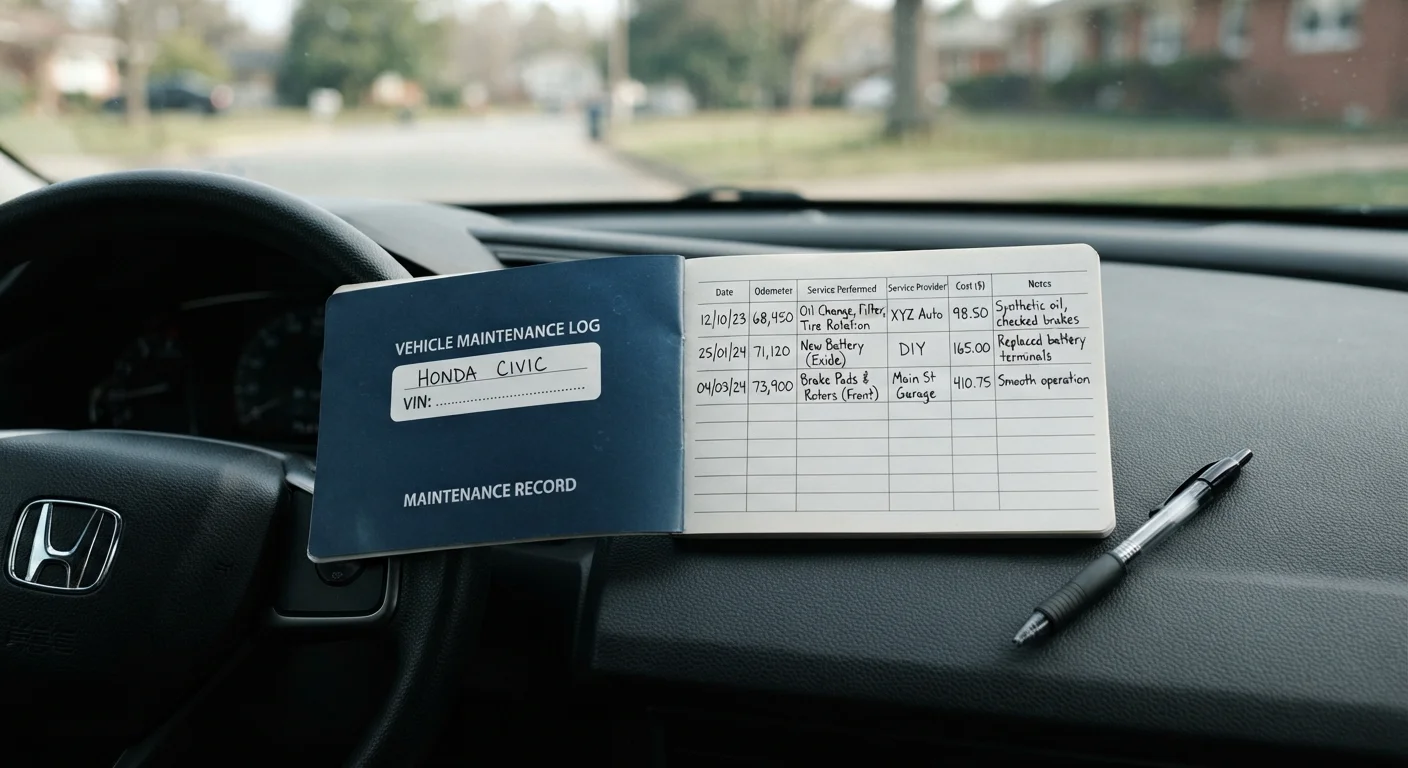 VEHICLE MAINTENANCE LOG
HONDA CIVIC
VIN: ........................................
MAINTENANCE RECORD
Date Odometer Service Performed Service Provider Cost ($) Notes
12/10/23 68,450 Oil Change, Filter, XYZ Auto 98.50 Synthetic oil,
Tire Rotation checked brakes
25/01/24 71,120 New Battery DIY 165.00 Replaced battery
(Exide) terminals
04/03/24 73,900 Brake Pads & Main St 410.75 Smooth operation
Roters (Front) Gurage